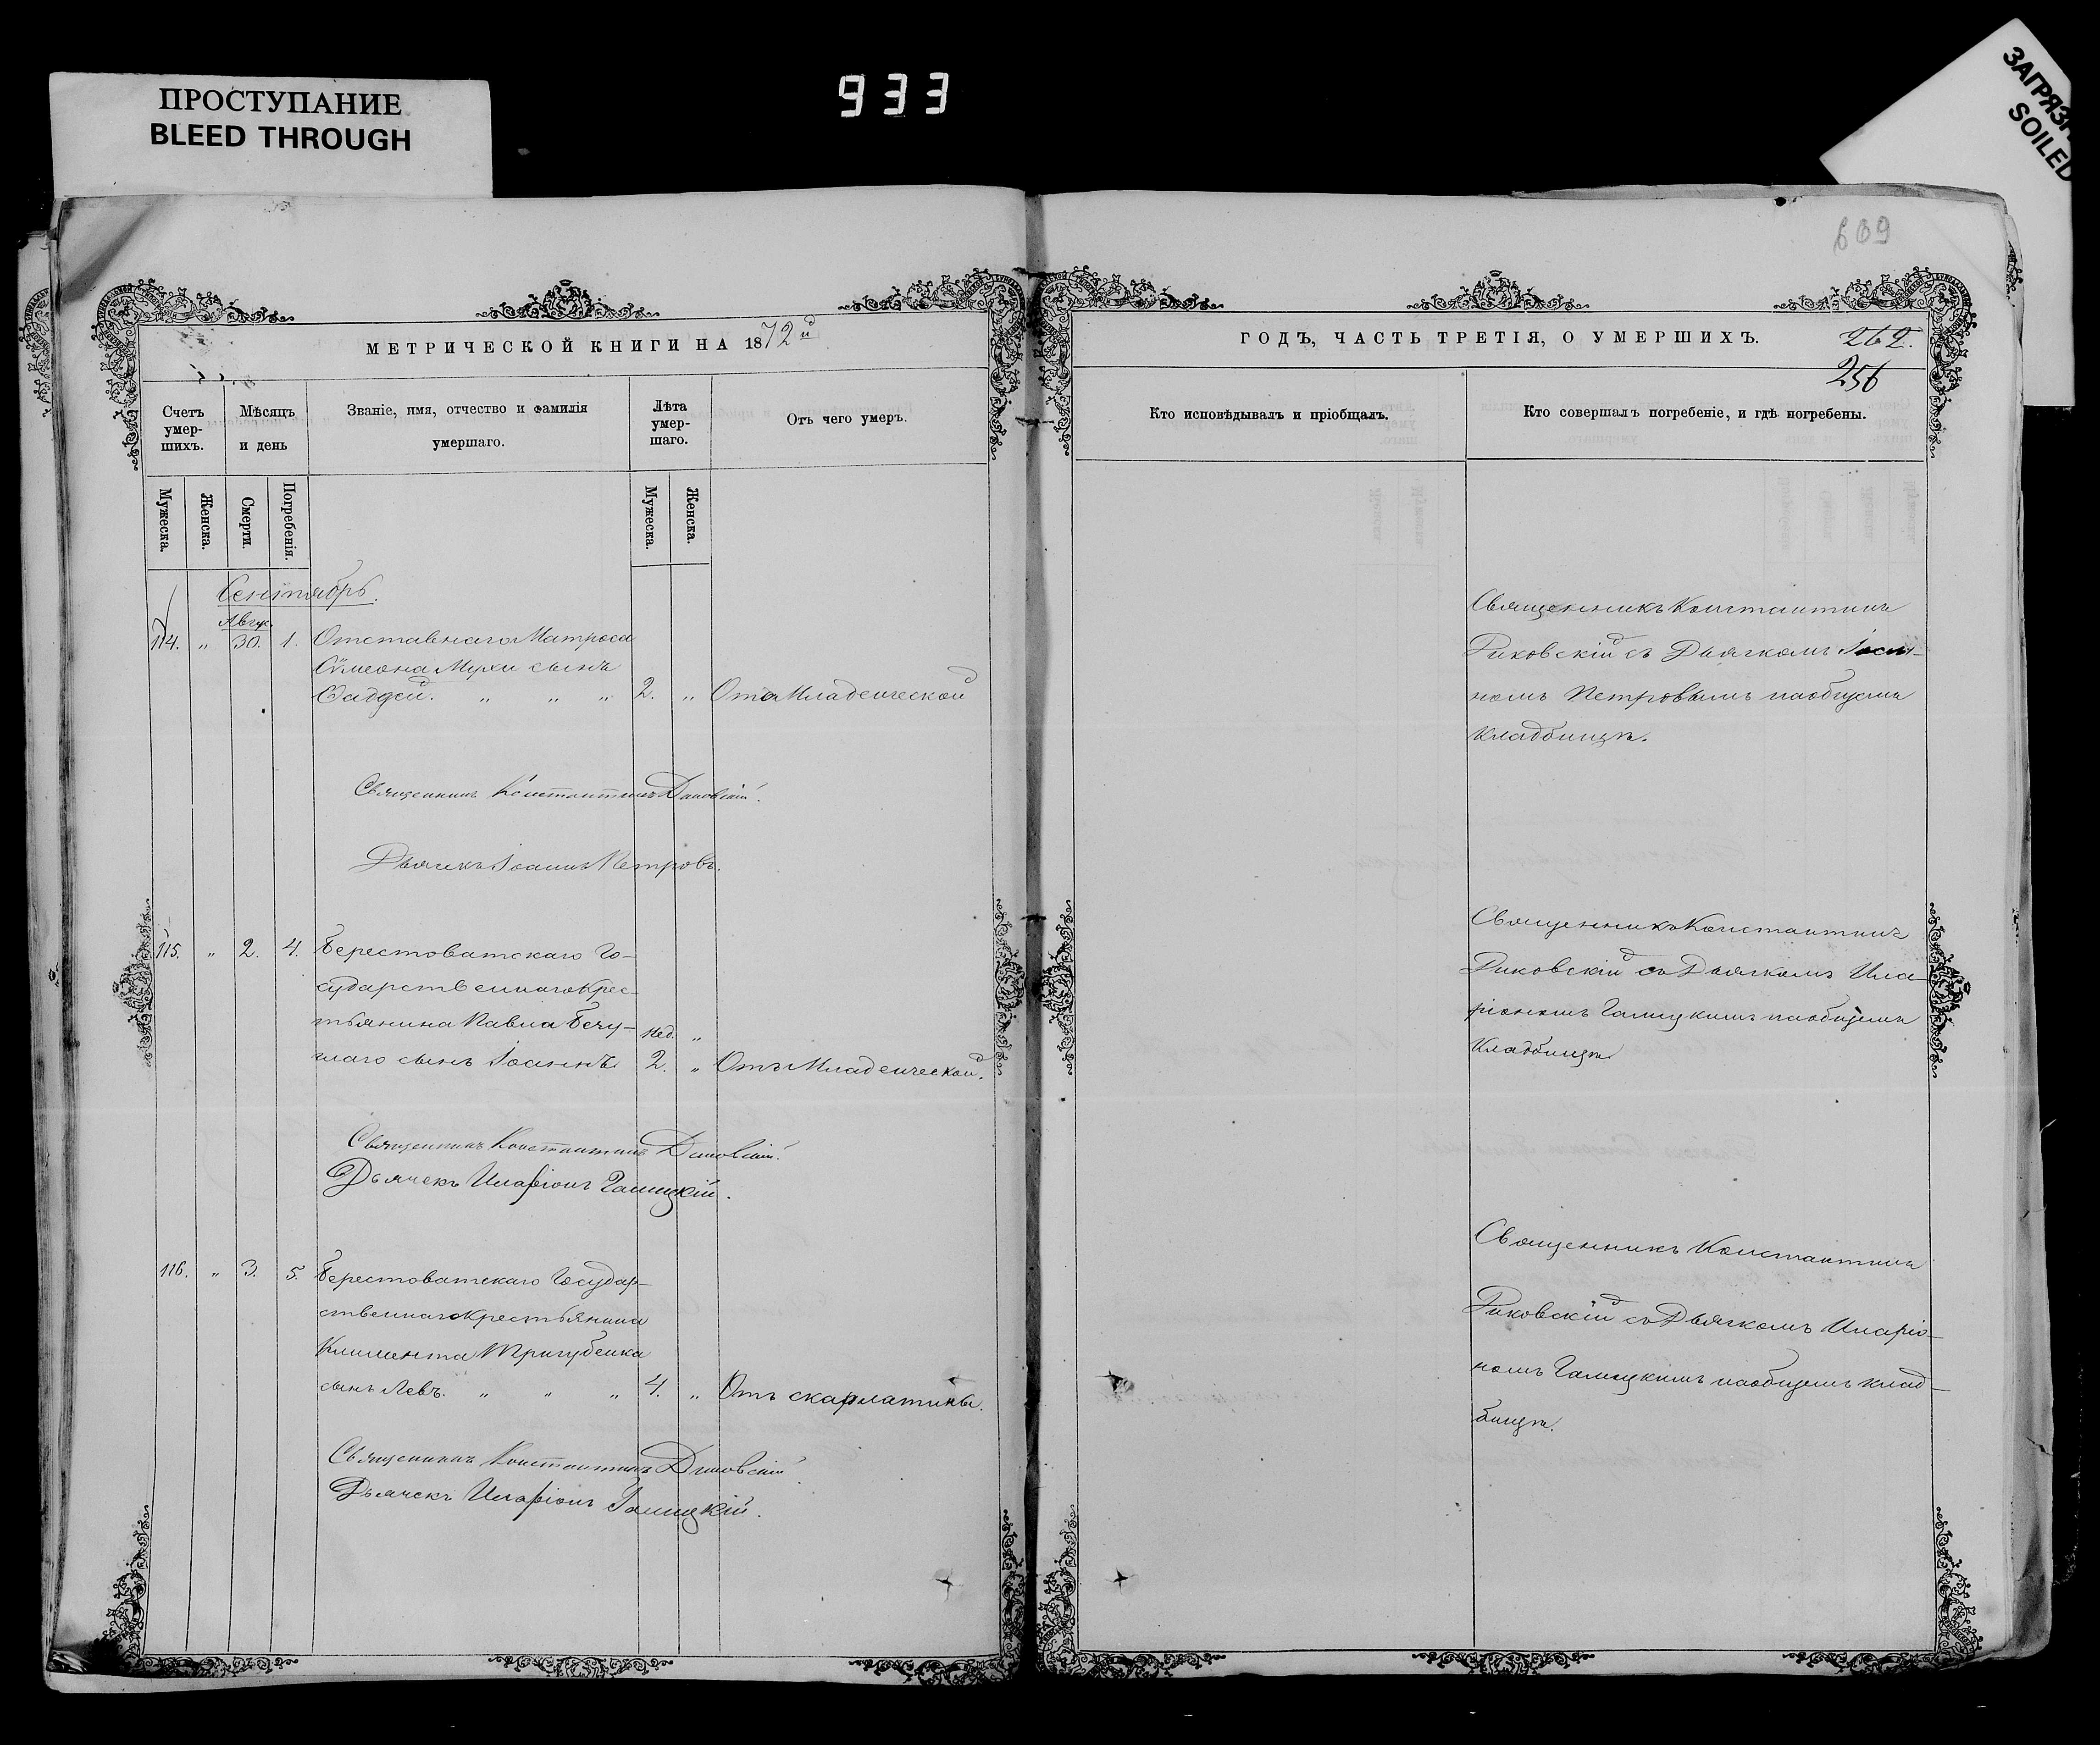 ПРОСТУПАНИЕ
BLEED THROUGH
933
SOILED
609
МЕТРИЧЕСКОЙ КНИГИ НА 1872й
ГОДЪ, ЧАСТЬ ТРЕТІЯ, О УМЕРШИХЪ.
262.
256
Счетъ умер-шихъ.
Мѣсяцъ и день
Званіе, имя, отчество и фамилія
умершаго.
Лѣта умер-шаго.
Отъ чего умеръ.
Кто исповѣдывалъ и пріобщалъ.
Кто совершалъ погребеніе, и гдѣ погребены.
Мужеска.
Женска.
Смерти.
Погребенія.
Мужеска.
Женска.
Сентябрь.
Авгус.
114. " 30. 1. Отставнаго Матроса
Сѵмеона Мухи сынъ
Фаддей. " " " 2. " Отъ Младенческой
Священникъ Константинъ
съ Дьячкомъ Іоан-
номъ Петровымъ наобщемъ
кладбищѣ.
Священникъ Константинъ
Дьячекъ Іоаннъ Петровъ.
115. " 2. 4. Берестоватскаго Го-
сударственнаго Крес-
тьянина Павла Бечу-
нед. "
глаго сынъ Іоаннъ 2. " Отъ Младенческой.
Священникъ Константинъ
съ Дьячкомъ Ила
ріономъ Галицкимъ наобщемъ
Кладбищѣ.
Священникъ Константинъ
Дьячекъ Иларіонъ Галицкій.
116. " 3. 5. Берестоватскаго Государ-
ственнаго Крестьянина
Климента Тригубенка
сынъ Левъ. " " " 4. " Отъ скарлатины.
Священникъ Константинъ
съ Дьячкомъ Иларіо-
номъ Галицкимъ наобщемъ клад-
бищѣ.
Священникъ Константинъ
Дьячекъ Иларіонъ Галицкій.